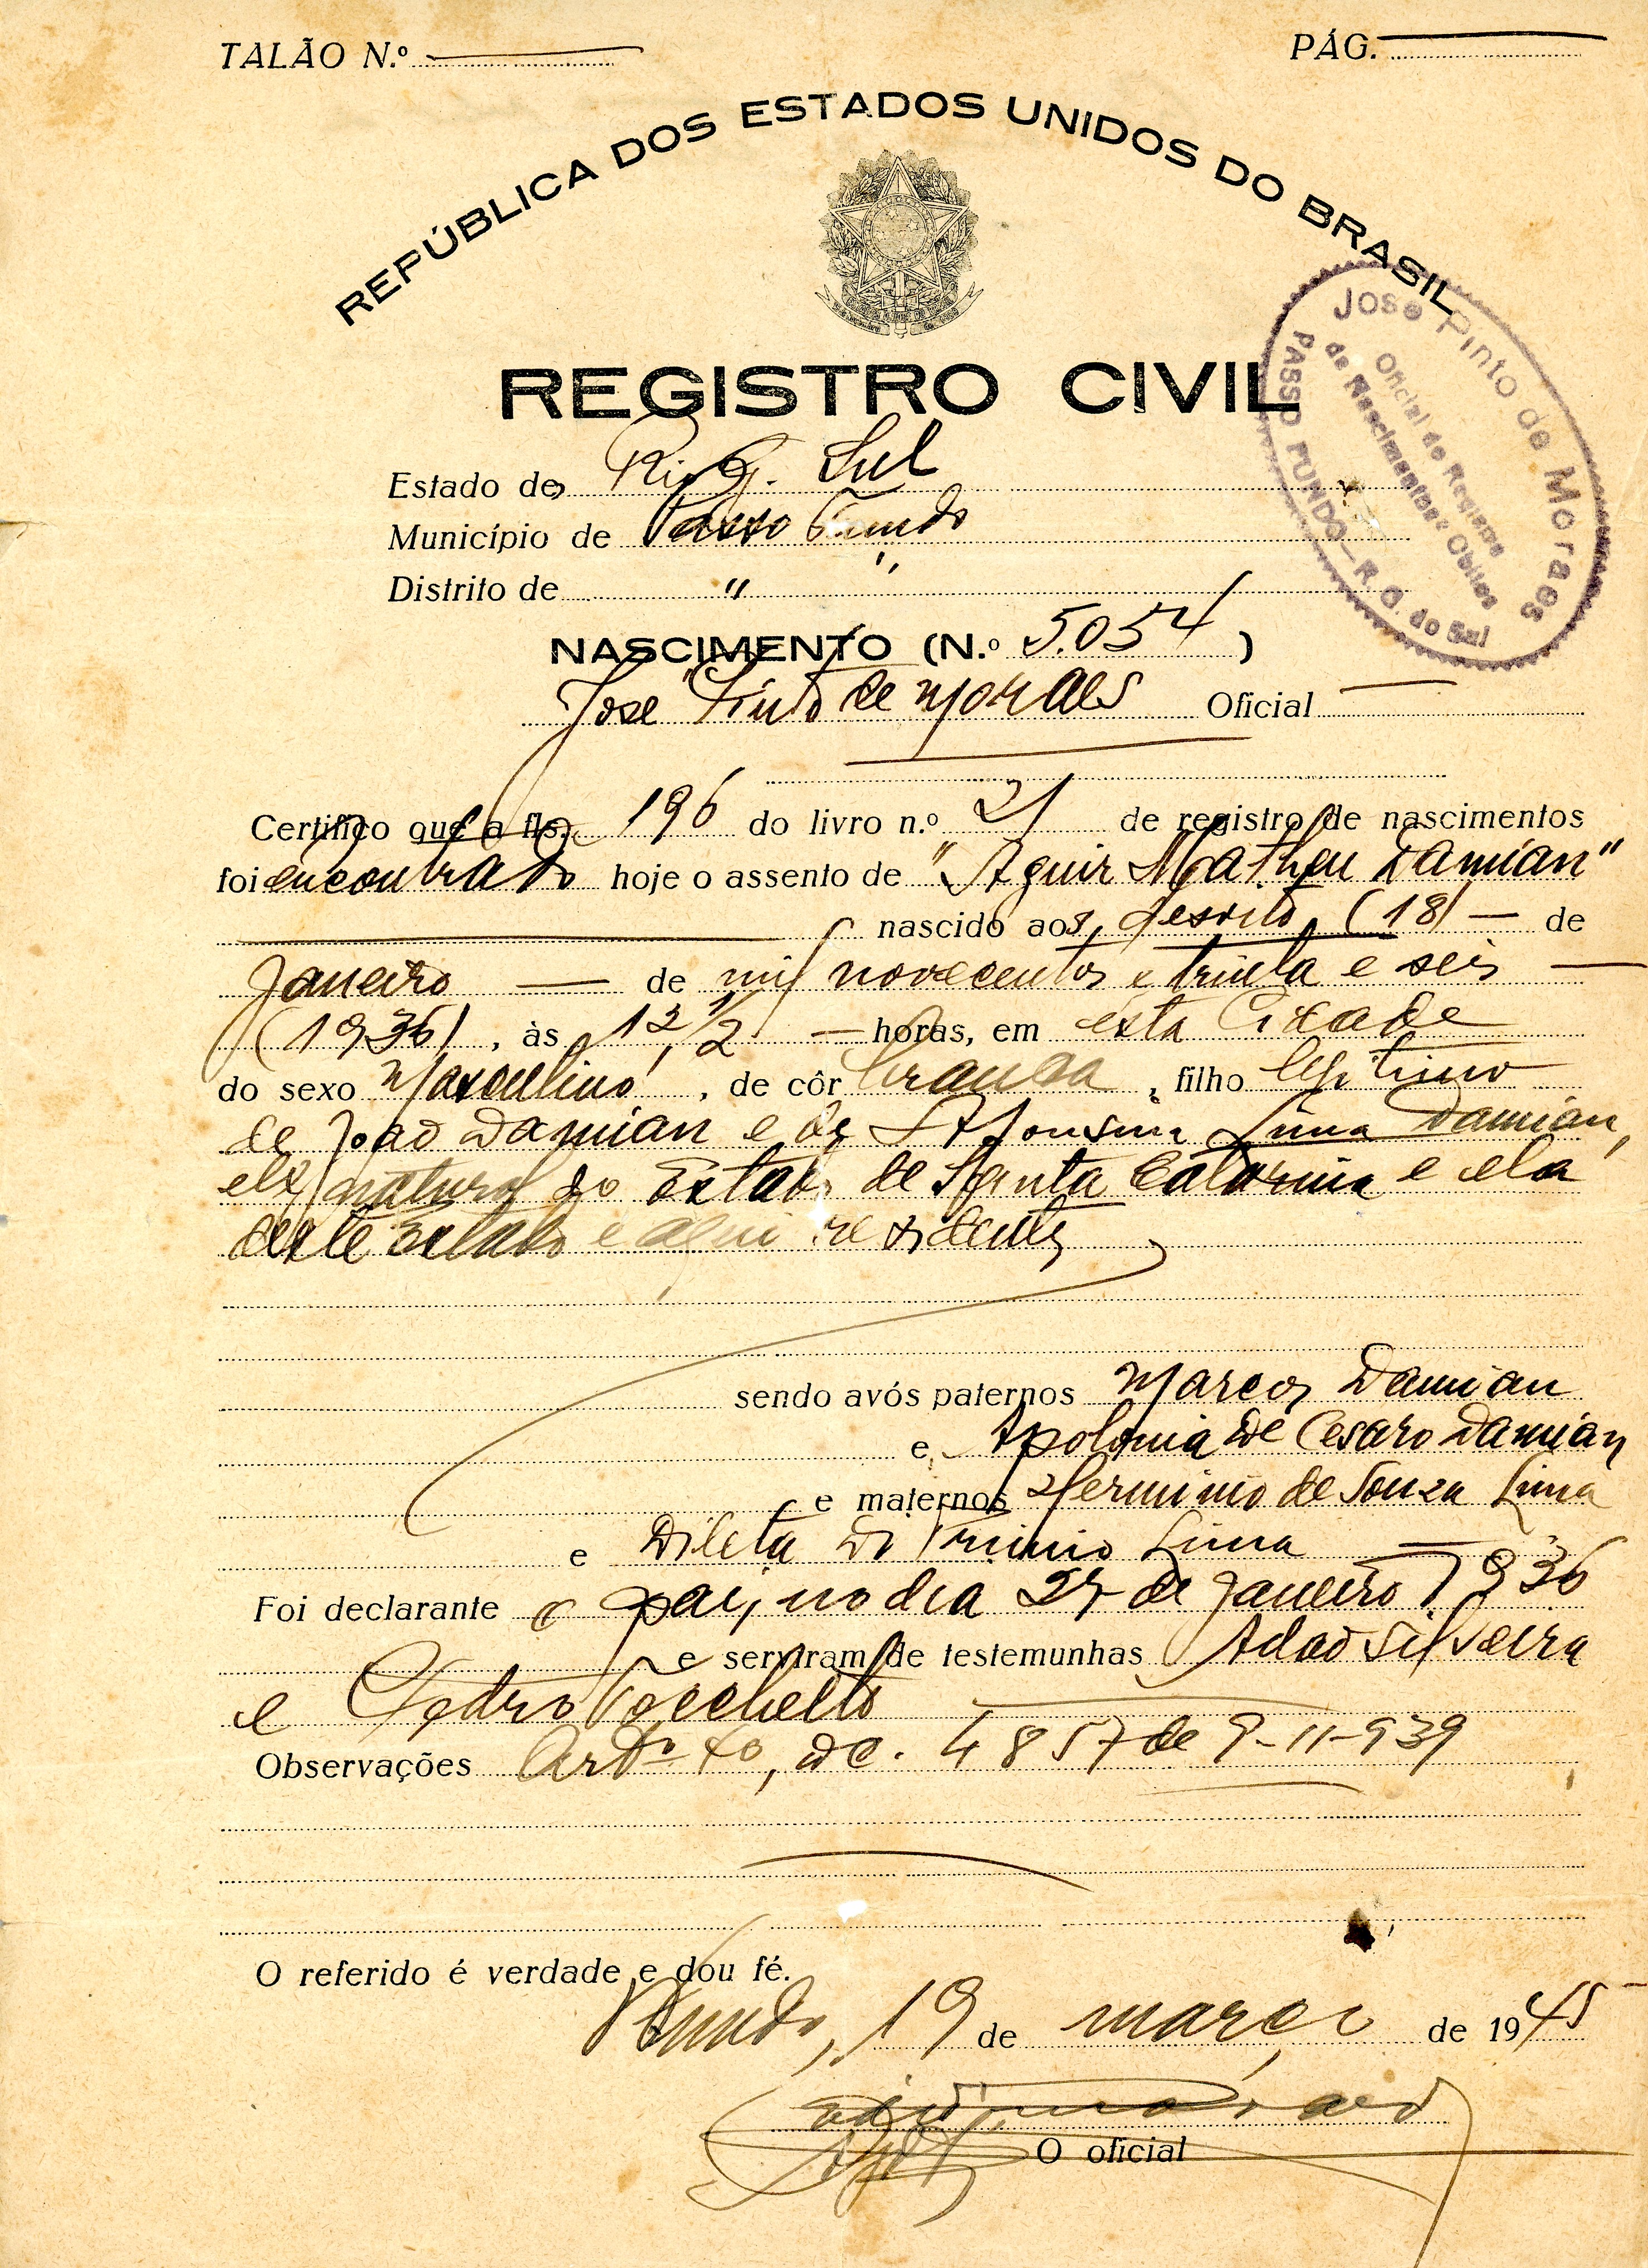 TALÃO N.º
PÁG.
REPÚBLICA DOS ESTADOS UNIDOS DO BRASIL
REGISTRO CIVIL
José Pinto de Moraes
Oficial do Registro
de Nascimentos e Obitos
PASSO FUNDO — R. G. do Sul
Estado de Rio G. Sul
Município de Passo Fundo
Distrito de " "
NASCIMENTO (N.º 5.054)
José Pinto de Moraes Oficial
Certifico que a fls. 196 do livro n.º 21 de registro de nascimentos
foi encontrado hoje o assento de "Aguir Matheu Damian"
nascido aos desoito (18) — de
Janeiro — de mil novecentos e trinta e seis —
(1936), às 12 1/2 — horas, em esta Cidade
do sexo Masculino, de côr branca, filho legitimo
de João Damian e de Afonsina Lima Damian,
ele natural do Estado de Santa Catarina e ela
deste Estado e aqui residentes
sendo avós paternos Marcos Damian
e Apolonia De Cesaro Damian
e maternos Herminio de Souza Lima
e Dileta Di Primio Lima —
Foi declarante o pai, no dia 27 de Janeiro 1936
e serviram de testemunhas Adão Silveira
e Pedro Tocchetto
Observações Artº 40, dc. 4857 de 9-11-939
O referido é verdade e dou fé.
PFundo, 19 de março de 1945
O oficial